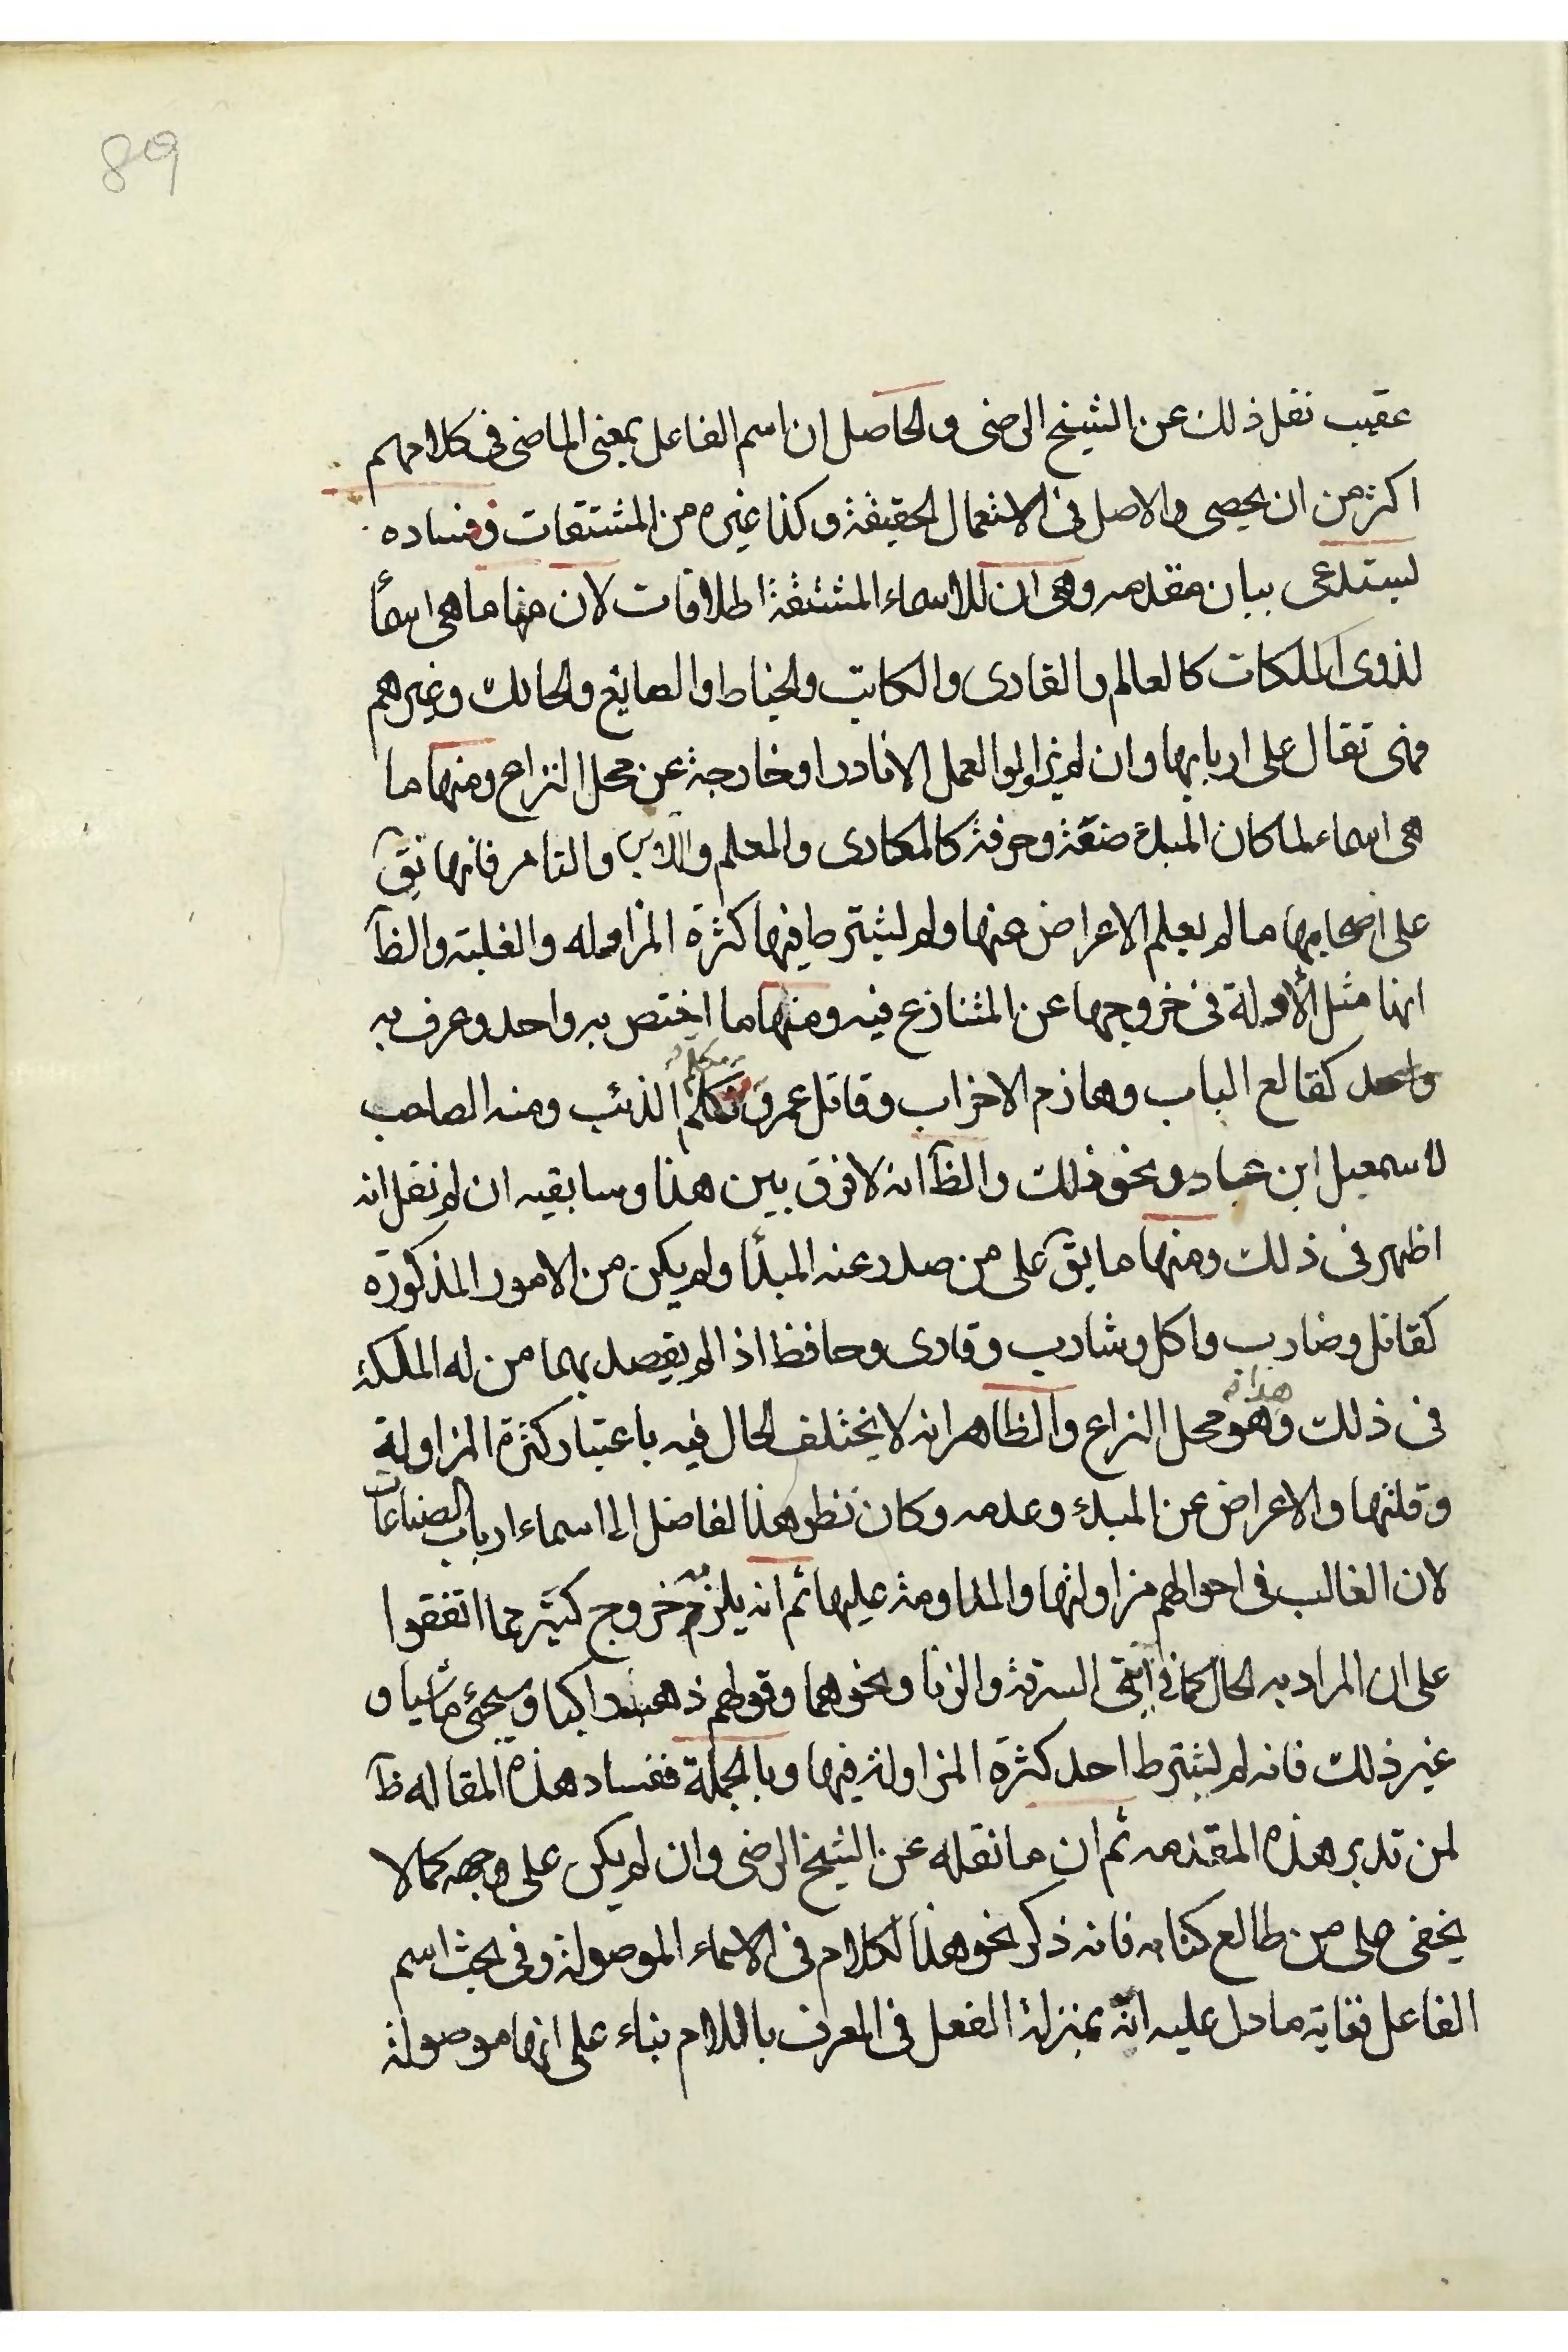 89
عقيب نقل ذلك عن الشيخ الرضى والحاصل ان اسم الفاعل بمعنى الماضى فى كلامهم
اكثر من ان يحصى والاصل فى الاستعمال الحقيقة وكذا غيره من المشتقات وفساده
يستدعى بيان مقدمه وهى ان للاسماء المشتقة اطلاقات لان منها ما هى اسماً
لذوى الملكات كالعالم والقارى والكاتب والخياط والصايغ والحائك وغيرهم
فهى تقال على اربابها وان لم يزاولوا العمل الا نادرا وخارجة عن محل النزاع ومنها ما
هى اسماء لما كان المبدء صنعة وحرفة كالمكارى والمعلم واللابن والتامر فانها تق
على اصحابها ما لم يعلم الاعراض عنها ولم يشترط فيها كثرة المزاوله والغلبة والظ
انها مثل الأولة فى خروجها عن المتنازع فيه ومنها ما اختص به واحد وعرف به
واحد كقالع الباب وهازم الاحزاب وقاتل عمرو ومكلم الذئب ومنه الصاحب
لاسمعيل ابن عباد ونحو ذلك والظ انه لا فرق بين هذا وسابقيه ان لم نقل انه
اظهر فى ذلك ومنها ما يق على من صدر عنه المبدأ ولم يكن من الامور المذكورة
كقاتل وضارب واكل وشارب وقارى وحافظ اذا لم يقصد بهما من له الملكة
فى ذلك وهو محل النزاع والظاهر انه لا يختلف الحال فيه باعتبار كثرة المزاولة
وقلتها والاعراض عن المبدء وعدمه وكان نظر هذا الفاضل الى اسماء ارباب الصناعات
لان الغالب فى احوالهم مزاولتها والمداومة عليها ثم انه يلزم خروج كثير مما اتفقوا
على ان المراد به الحال كما فى آيتى السرقة والزنا ونحوهما وقولهم ذهب راكبا وسيجئ ماشيا و
غير ذلك فانه لم يشترط احد كثرة المزاولة فيها وبالجملة ففساد هذه المقاله ظ
لمن تدبر هذه المقدمه ثم ان ما نقله عن الشيخ الرضى وان لم يكن على وجهه كما لا
يخفى على من طالع كتابه فانه ذكر نحو هذا الكلام فى الاسماء الموصولة وفى بحث اسم
الفاعل فغاية ما دل عليه انه بمنزلة الفعل فى المعرف باللام بناء على انها موصولة